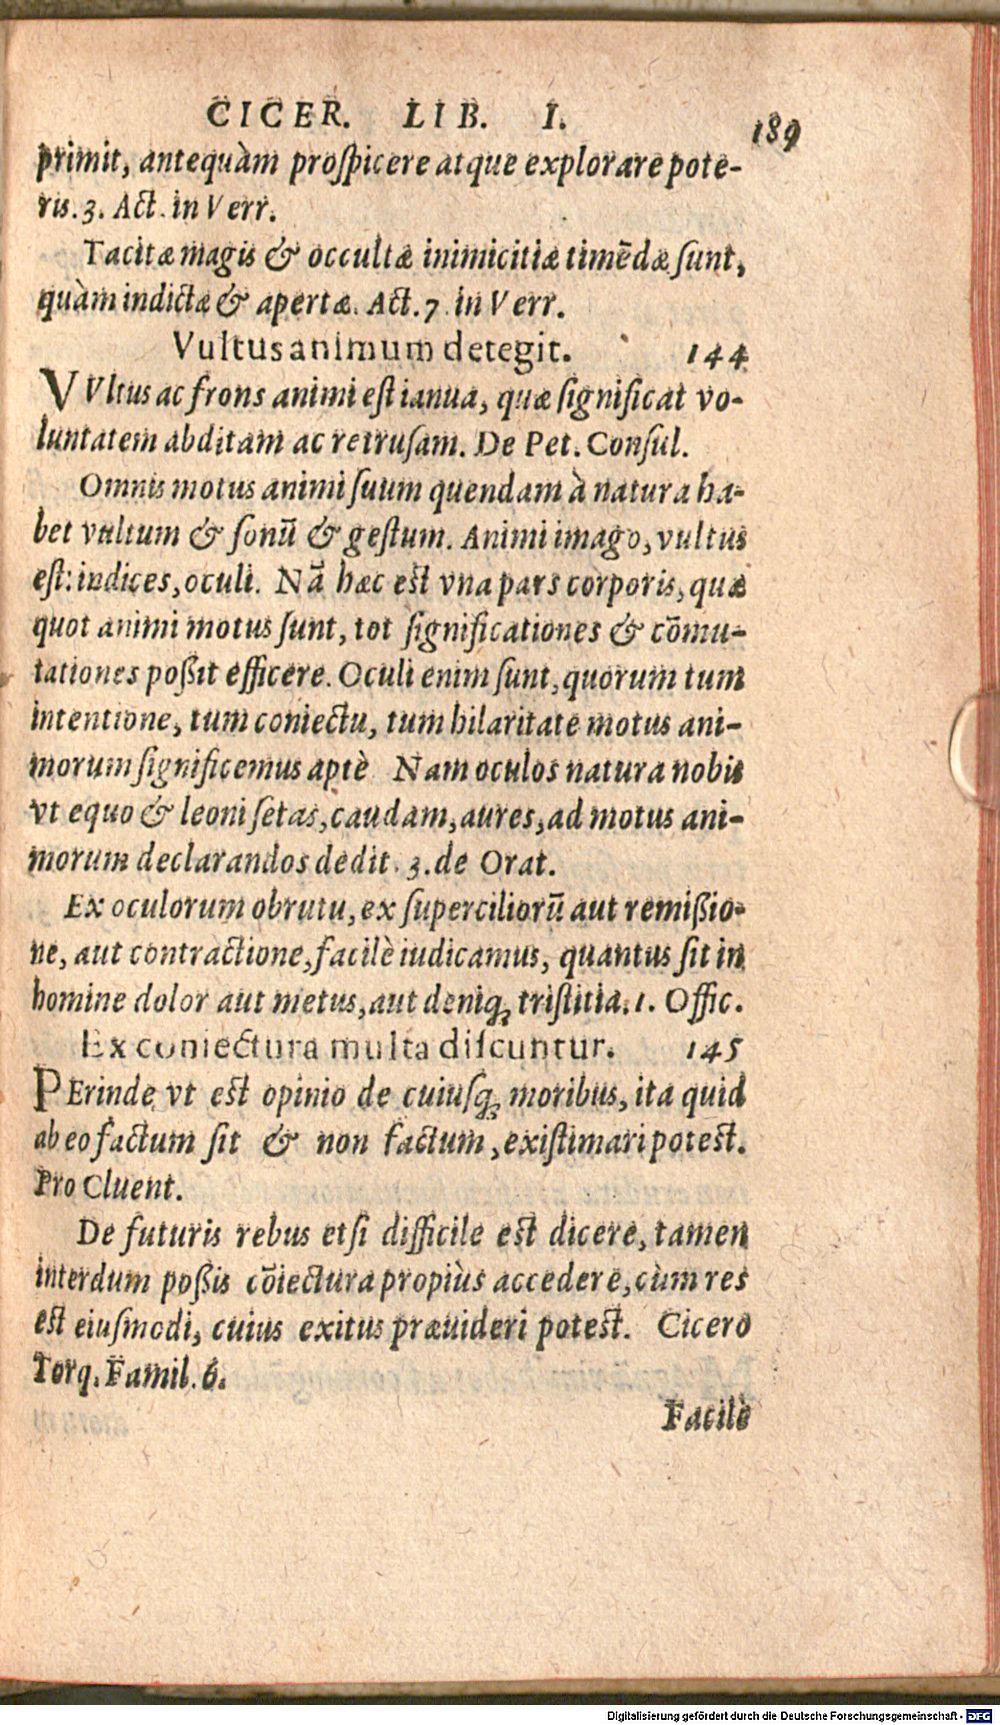 CICER. LIB. I. 189
primit, antequàm proſpicere atque explorare pote-
ris. 3. Act. in Verr.
Tacitæ magis & occultæ inimicitiæ timẽdæ ſunt,
quàm indictæ & apertæ. Act. 7 in Verr.
Vultus animum detegit. 144
VVltus ac frons animi eſt ianua, quæ ſignificat vo-
luntatem abditam ac retruſam. De Pet. Conſul.
Omnis motus animi ſuum quendam à natura ha-
bet vultum & ſonũ & geſtum. Animi imago, vultus
eſt: indices, oculi. Nã hæc eſt vna pars corporis, quæ
quot animi motus ſunt, tot ſignificationes & cõmu-
tationes poßit efficere. Oculi enim ſunt, quorum tum
intentione, tum coniectu, tum hilaritate motus ani-
morum ſignificemus aptè Nam oculos natura nobis
vt equo & leoni ſetas, caudam, aures, ad motus ani-
morum declarandos dedit. 3. de Orat.
Ex oculorum obrutu, ex ſuperciliorũ aut remißio-
ne, aut contractione, facilè iudicamus, quantus ſit in
homine dolor aut metus, aut deniq; triſtitia. 1. Offic.
Ex coniectura multa diſcuntur. 145
PErinde vt eſt opinio de cuiuſq; moribus, ita quid
ab eo factum ſit & non factum, exiſtimari poteſt.
Pro Cluent.
De futuris rebus etſi difficile eſt dicere, tamen
interdum poßis cõiectura propiùs accedere, cùm res
eſt eiuſmodi, cuius exitus præuideri poteſt. Cicero
Torq. Famil. 6.
Facilè
Digitalisierung gefördert durch die Deutsche Forschungsgemeinschaft - DFG